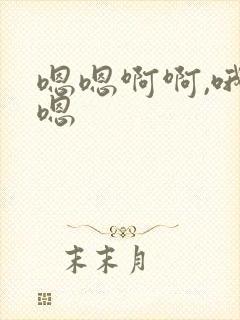 嗯嗯啊啊,哦
嗯
末末月